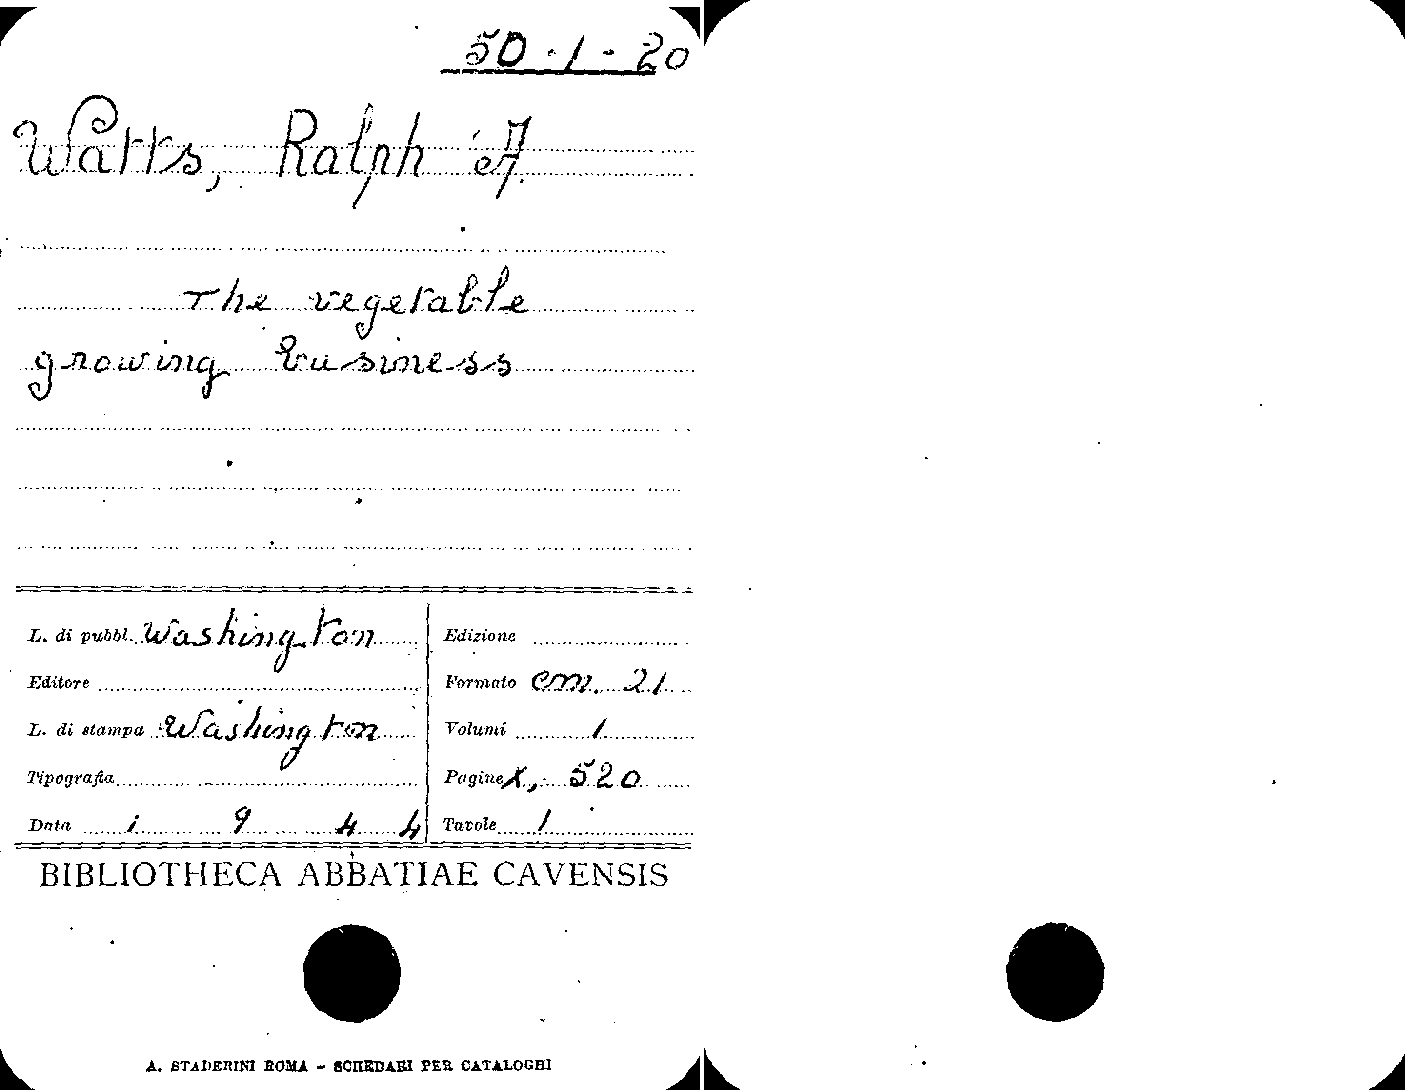 50-1-20
Watts, Ralph A.
The vegetable
growing business
L. di pubbl. Washington
Editore
L. di stampa Washington
Tipografia
Data 1944
Edizione
Formato cm. 21
Volumi 1
Pagine X, 520
Tavole 1
BIBLIOTHECA ABBATIAE CAVENSIS
A. STADERINI ROMA - SCHEDARI PER CATALOGHI